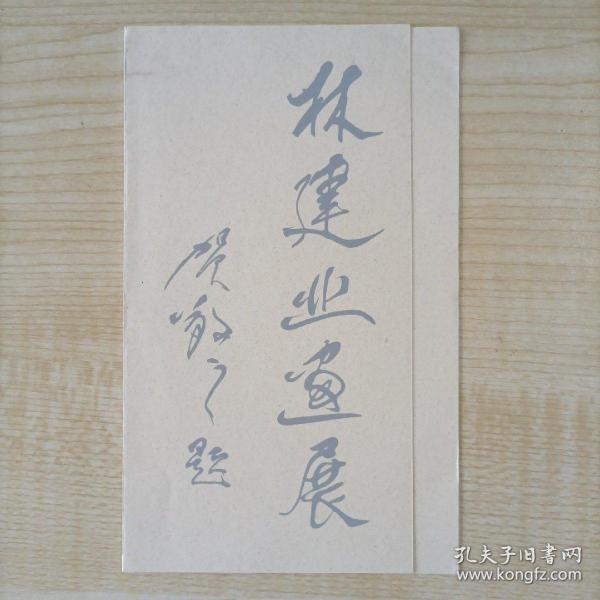 林建业画展
贺敬之题
孔夫子旧書网
www.kongfz.com